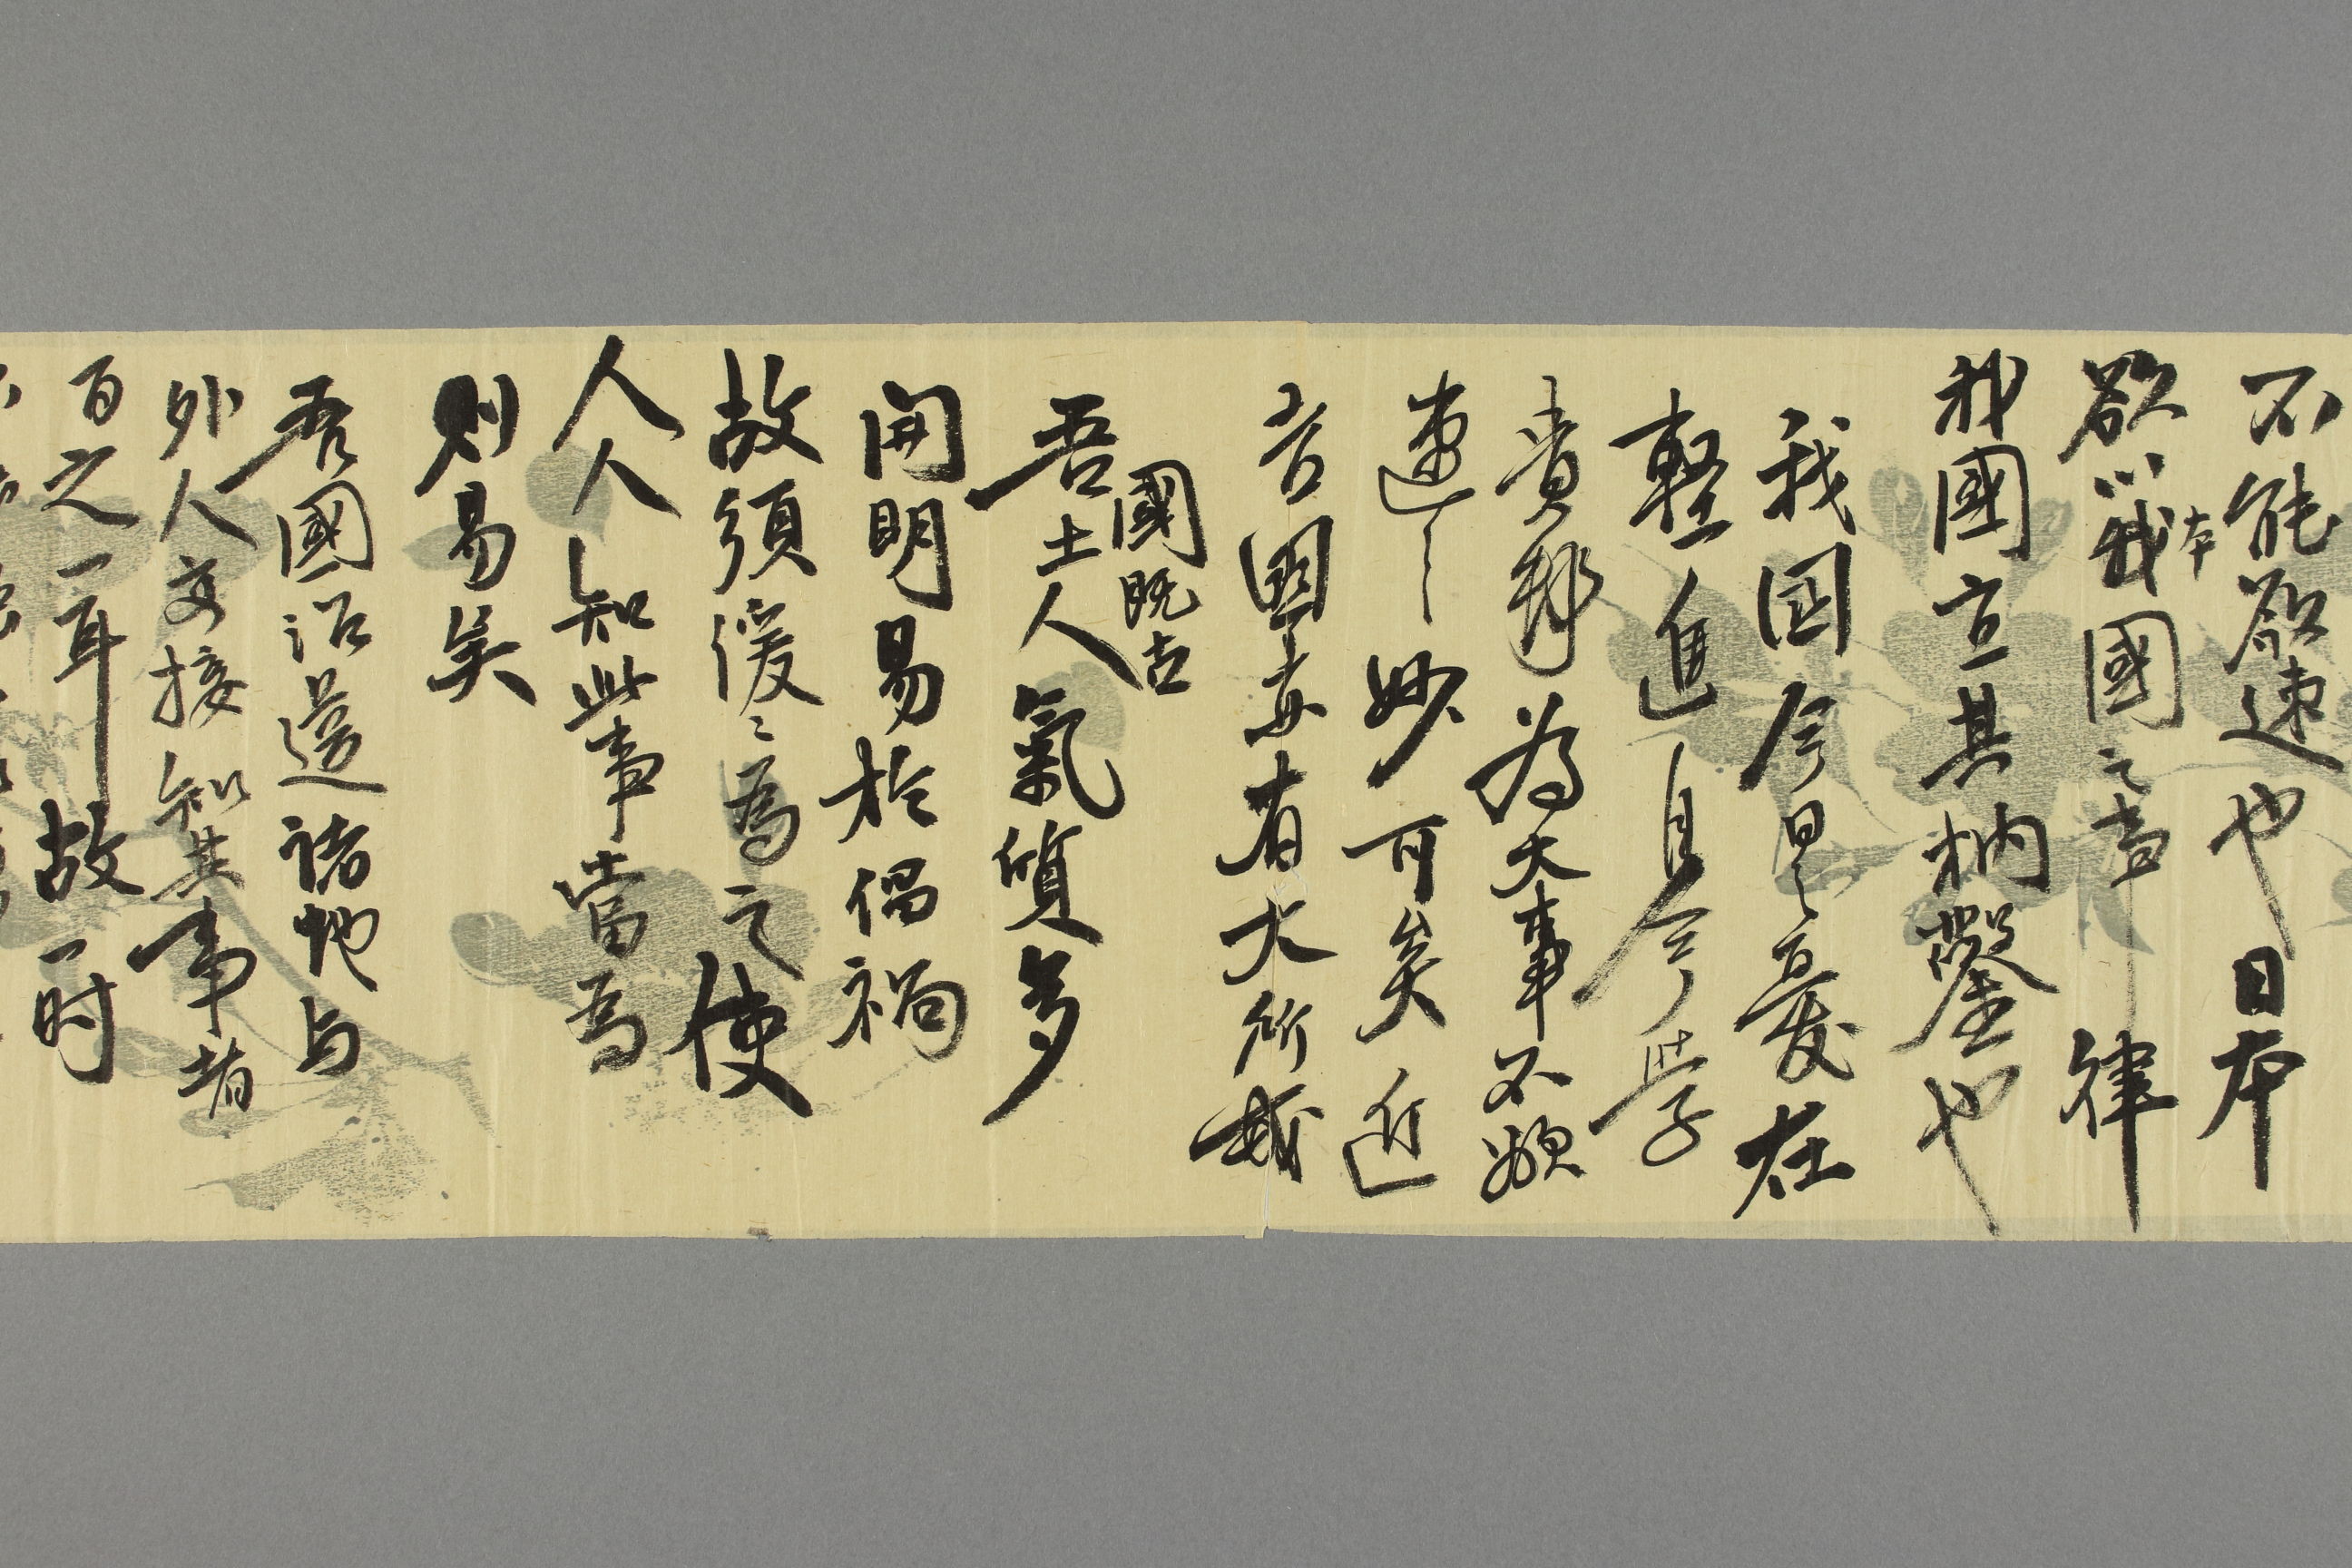 不能欲速也日本
欲以我本國之章律
我國宜其枘鑿也
我國今日之憂在
輕進自今學
貴邦為大事不煩
速之妙可矣近
吾國妄有大所
國既古
吾土人氣質多
開明易於倡禍
故須緩之為之使
人人知此事當為
則易矣
吾國沿邊諸地与
外人交接知其事者
百之一耳故一时